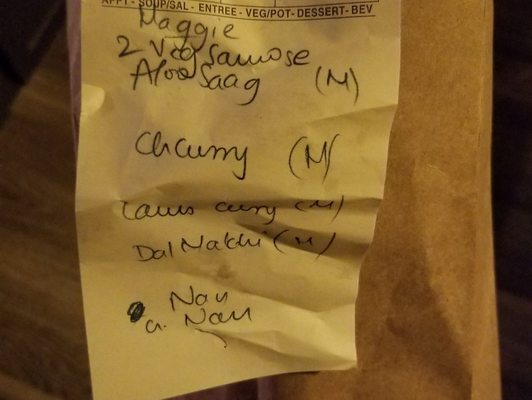 APPT - SOUP/SAL - ENTREE - VEG/POT - DESSERT - BEV
Maggie
2 Veg Samose
Aloo Saag (M)
Ch Curry (M)
curry (M)
Dal Makhi (M)
Nan
G. Nan